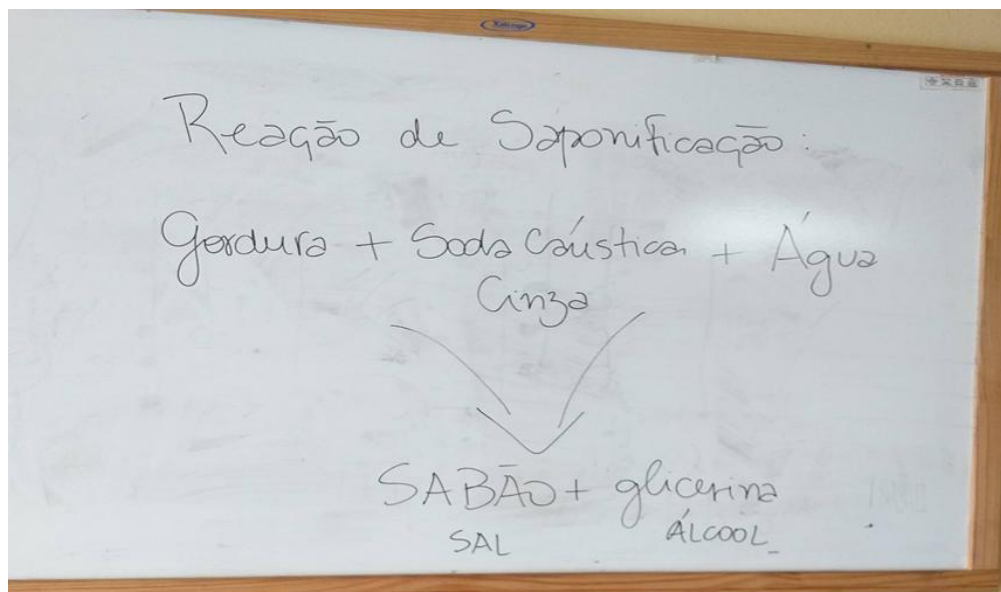 Reação de Saponificação:
Gordura + Soda Caústica + Água
Cinza
SABÃO + glicerina
SAL ÁLCOOL